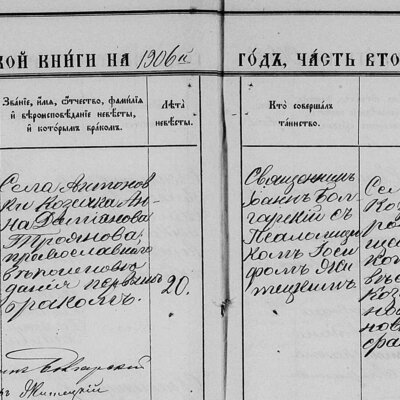 кой книги на 1906й годъ, часть вто
Званіе, имя, отчество, фамилія
и вѣроисповѣданіе невѣсты,
и которымъ бракомъ.
Лѣта
невѣсты.
Кто совершалъ
таинство.
Села Антонов
ки козачка Ан
на Даміанова
Троянова,
православнаго
вѣроисповѣ
данія первымъ
бракомъ.
20.
Священникъ
Іоаннъ Бол
гарскій съ
Псаломщи
комъ Іоси
фомъ Жи
тецкимъ
Болгарскій
Житецкій